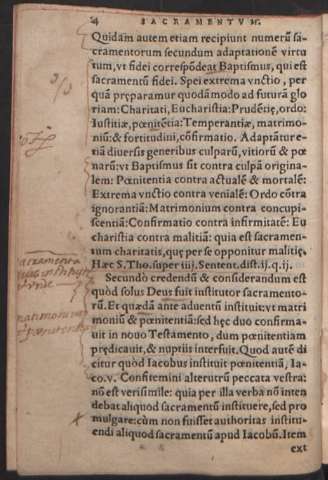 4 SACRAMENTVM.
Quidam autem etiam recipiunt numerũ sa-
cramentorum secundum adaptationẽ virtu
tum, vt fidei correspõdeat Baptismus, qui est
sacramentũ fidei. Spei extrema vnctio, per
quã præparamur quodãmodo ad futurã glo
riam: Charitati, Eucharistia: Prudẽtię, ordo:
Iustitiæ, pœnitẽtia: Temperantiæ, matrimo-
niũ: & fortitudini, cõfirmatio. Adaptãtur e-
tiã diuersis generibus culparũ, vitiorũ & pœ
narũ: vt Baptismus sit contra culpã origina-
lem: Pœnitentia contra actualẽ & mortalẽ:
Extrema vnctio contra venialẽ: Ordo cõtra
ignorantiã: Matrimonium contra concupi-
scentiã: Confirmatio contra infirmitatẽ: Eu
charistia contra malitiã: quia est sacramen-
tum charitatis, quę per se opponitur malitię.
Hæc S. Tho. super iiij. Sentent. dist. ij. q. ij.
Secundò credendũ & considerandum est
quòd solus Deus fuit institutor sacramento-
rũ. Et quædã ante aduentũ instituit: vt matri
moniũ & pœnitentiã: sed hęc duo confirma-
uit in nouo Testamento, dum pœnitentiam
prędicauit, & nuptiis interfuit. Quod autẽ di
citur quòd Iacobus instituit pœnitentiã, Ia-
co. v. Confitemini alterutrũ peccata vestra:
nõ est verisimile: quia per illa verba nõ inten
debat aliquod sacramentũ instituere, sed pro
mulgare: cùm non fuisset authoritas institu-
endi aliquod sacramentũ apud Iacobũ. Item
ext
sacramenta
matrimonium